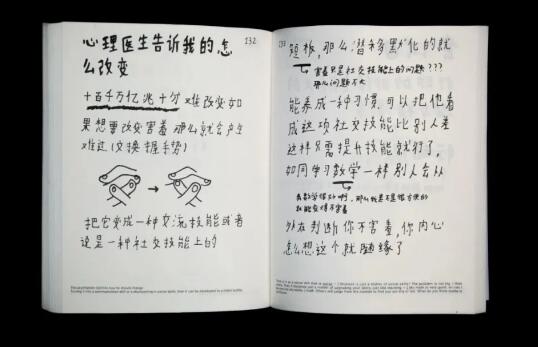 心理医生告诉我的怎
么改变
132
十百千万亿兆十分难改变如
果想要改变害羞那么就会产生
难过(交换握手势)
把它变成一种交流技能或者
说是一种社交技能上的
133
短板,那么潜移默化的就
害羞只是社交技能上的问题???
那么问题不大
能养成一种习惯,可以把他看
成这项社交技能比别人差
这样只需提升技能就行了,
如同学习数学一样 别人会从
我数学很好啊,那么我是不是很方便的
就能变得不害羞
外在判断你不害羞,你内心
怎么想这个就随缘了